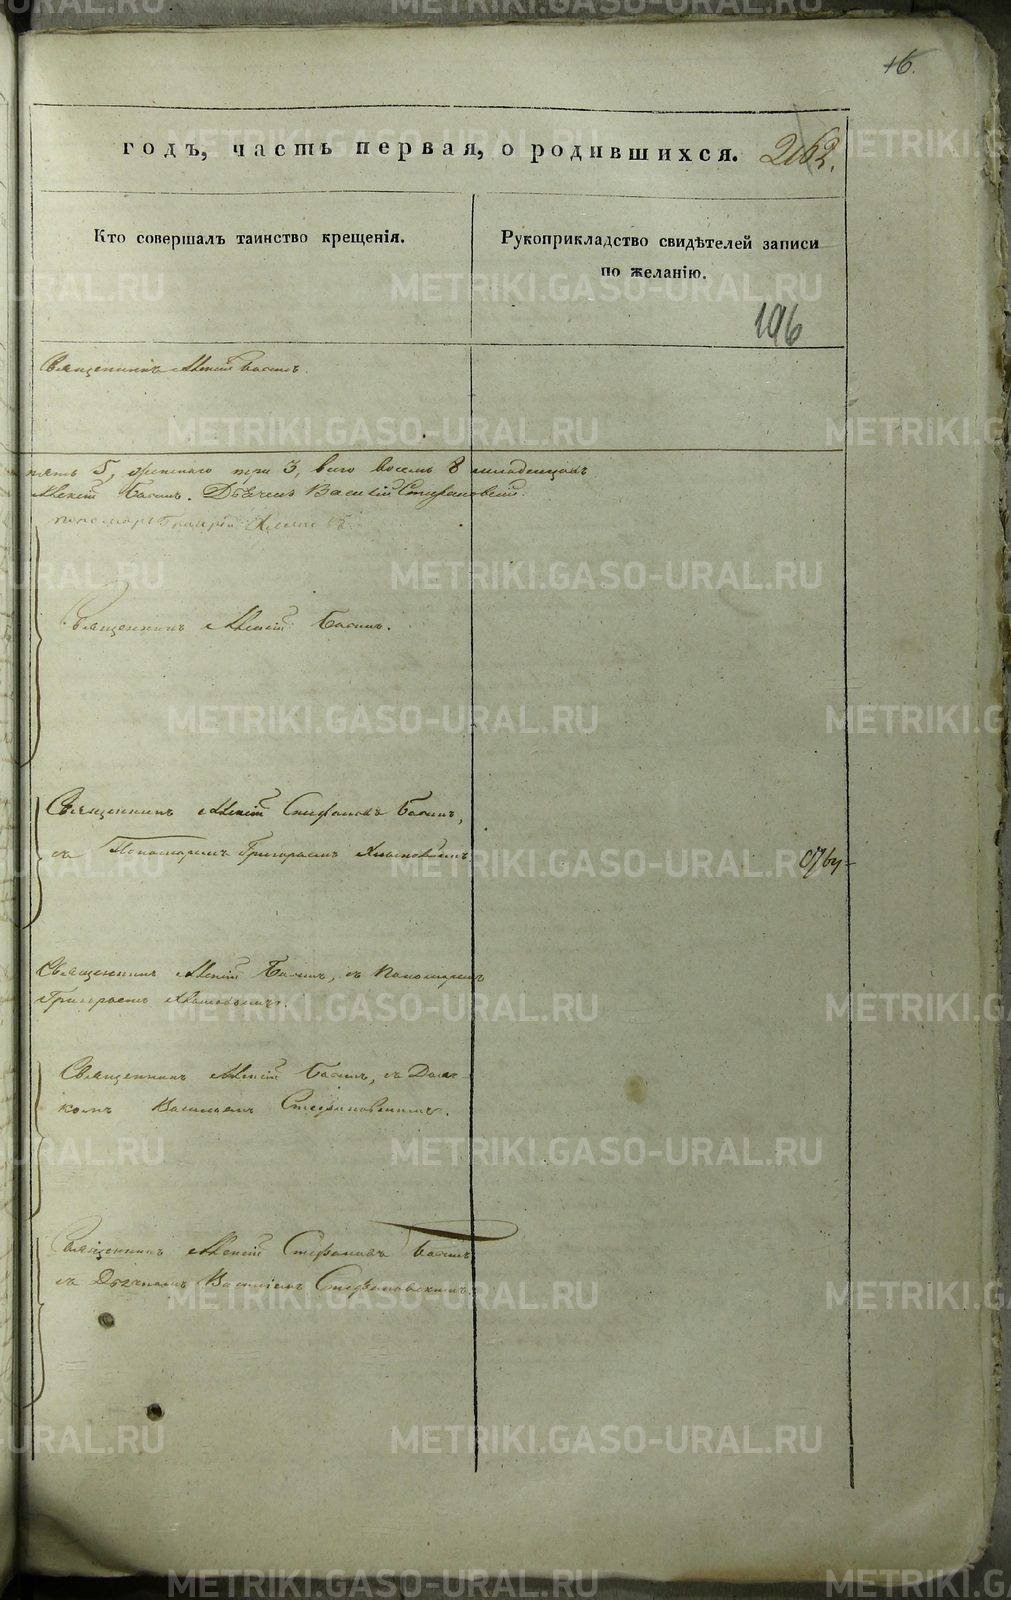 16.
годъ, часть первая, о родившихся.
Кто совершалъ таинство крещенія.
Рукоприкладство свидѣтелей записи
по желанію.
196
Священникъ Алексій Басинъ.
пять 5, женскаго три 3, всего восемь 8 младенцовъ
Алексій Басинъ. Дьячекъ Василій Стефановскій.
пономарь Григорій
Священникъ Алексій Басинъ.
Священникъ Алексій Стефановъ Басинъ,
съ Пономаремъ Григорьемъ
Священникъ Алексій Басинъ, съ Пономаремъ
Григорьемъ
Священникъ Алексій Басинъ, съ Дьяч-
комъ Васильемъ Стефановскимъ.
Священникъ Алексій Стефановъ Басинъ
съ Дьячкомъ Василіемъ Стефановскимъ
METRIKI.GASO-URAL.RU